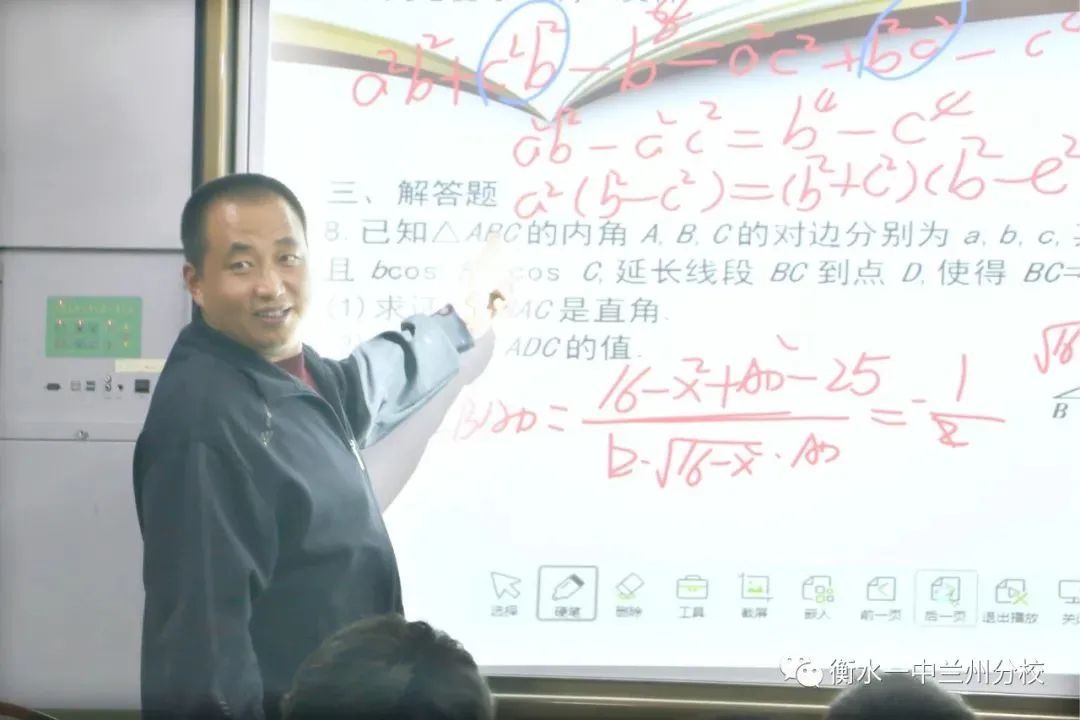 a²b²+c²b²-b⁴=a²c²+b²c²-c
a²b²-a²c²=b⁴-c⁴
三、解答题
a²(b²-c²)=(b²+c²)(b²-c²
8. 已知△ABC的内角 A, B, C的对边分别为 a, b, c,
且 bcos cos C, 延长线段 BC 到点 D, 使得 BC=
(1) 求证 AC 是直角.
ADC的值.
16-x²+AD²-25
= = -1/2
2·√16-x²·AD
B
选择 硬笔 删除 工具 截屏 嵌入 前一页 后一页 退出播放
衡水一中兰州分校